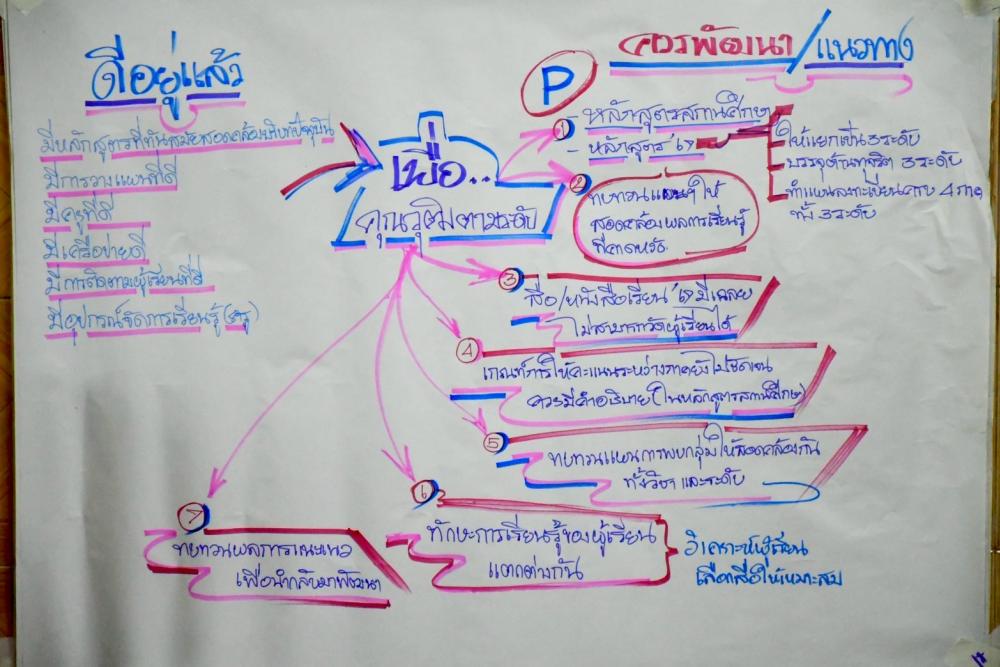 ดีอยู่แล้ว
มีหลักสูตรที่ทันสมัยสอดคล้องบริบทปัจจุบัน
มีการวางแผนที่ดี
มีครูที่ดี
มีเครือข่ายดี
มีการติดตามผู้เรียนที่ดี
มีอุปกรณ์จัดการเรียนรู้
เพื่อ..
คุณวุฒิตามระดับ
ควรพัฒนา/แนวทาง
P
1
- หลักสูตรสถานศึกษา
- หลักสูตร
ให้แยกเป็น 3 ระดับ
บรรจุ 3 ระดับ
ทำแผนลงทะเบียนครบ 4 ภาค
ทั้ง 3 ระดับ
2
ทบทวนแผนฯ ให้
สอดคล้องผลการเรียนรู้
ที่คาดหวัง
3
สื่อ/หนังสือเรียน มีเฉลย
ไม่สามารถวัดผู้เรียนได้
4
เกณฑ์การให้คะแนนระหว่างภาคยังไม่ชัดเจน
ควรมีคำอธิบาย (ในหลักสูตรสถานศึกษา)
5
ทบทวนแผนการพบกลุ่มให้สอดคล้องกัน
ทั้งวิชา และระดับ
6
ทักษะการเรียนรู้ของผู้เรียน
แตกต่างกัน
วิเคราะห์ผู้เรียน
เลือกสื่อให้เหมาะสม
7
ทบทวนผลการแนะแนว
เพื่อนำกลับมาพัฒนา